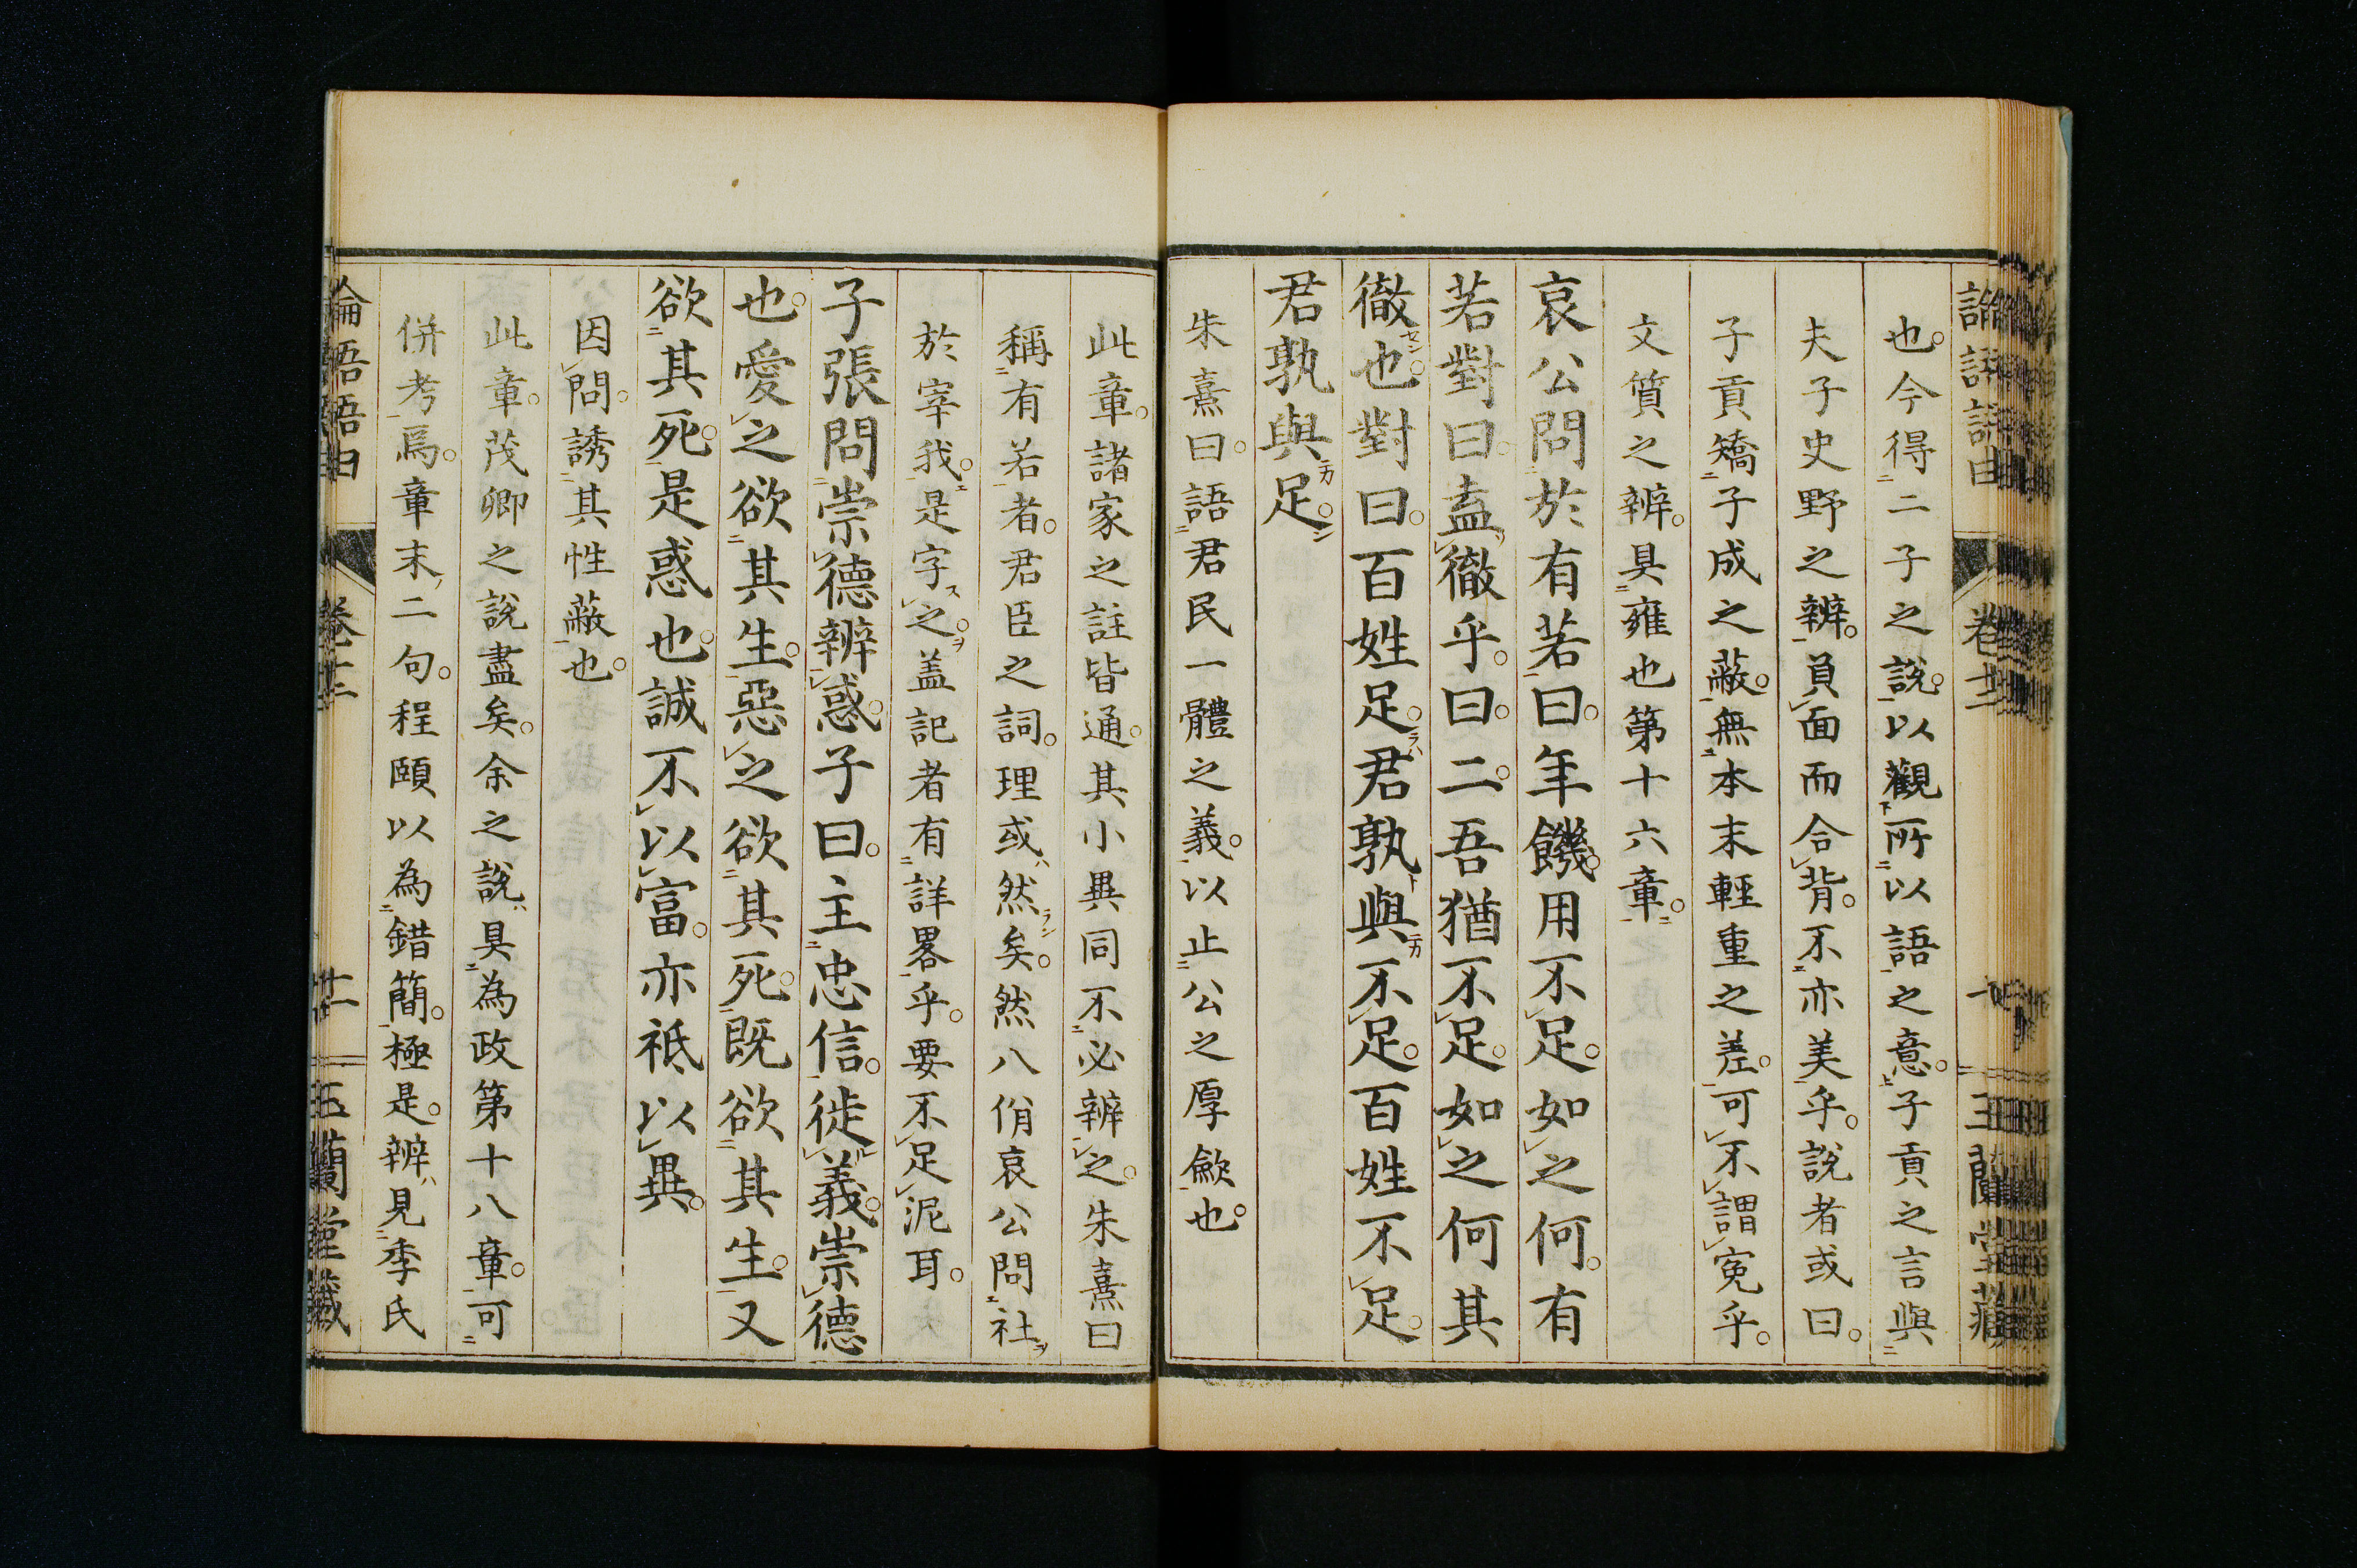 也。今得二子之說。以觀所以語之意。子貢之言與
夫子史野之辨。負面而合背。不亦美乎。說者或曰。
子貢矯子成之蔽。無本末輕重之差。可不謂寃乎。
文質之辨。具雍也第十六章。
哀公問於有若曰。年饑。用不足。如之何。有
若對曰。盍徹乎。曰。二。吾猶不足。如之何其
徹也。對曰。百姓足。君孰與不足。百姓不足。
君孰與足。
朱熹曰。語君民一體之義。以止公之厚斂也。
此章。諸家之註皆通。其小異同不必辨之。朱熹曰
稱有若者。君臣之詞。理或然矣。然八佾哀公問社
於宰我。是字之。盖記者有詳畧乎。要不足泥耳。
子張問崇德辨惑。子曰。主忠信。徙義。崇德
也。愛之欲其生。惡之欲其死。既欲其生。又
欲其死。是惑也。誠不以富。亦祗以異。
因問。誘其性蔽也。
此章。茂卿之說盡矣。余之說具為政第十八章。可
併考焉。章末二句。程頤以為錯簡。極是。辨見季氏
論語語由 卷十二 十一 玉蘭堂藏